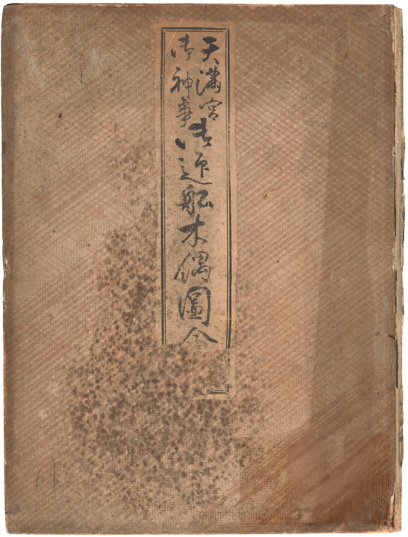 天満宮
御神事
御迎船木偶圖全